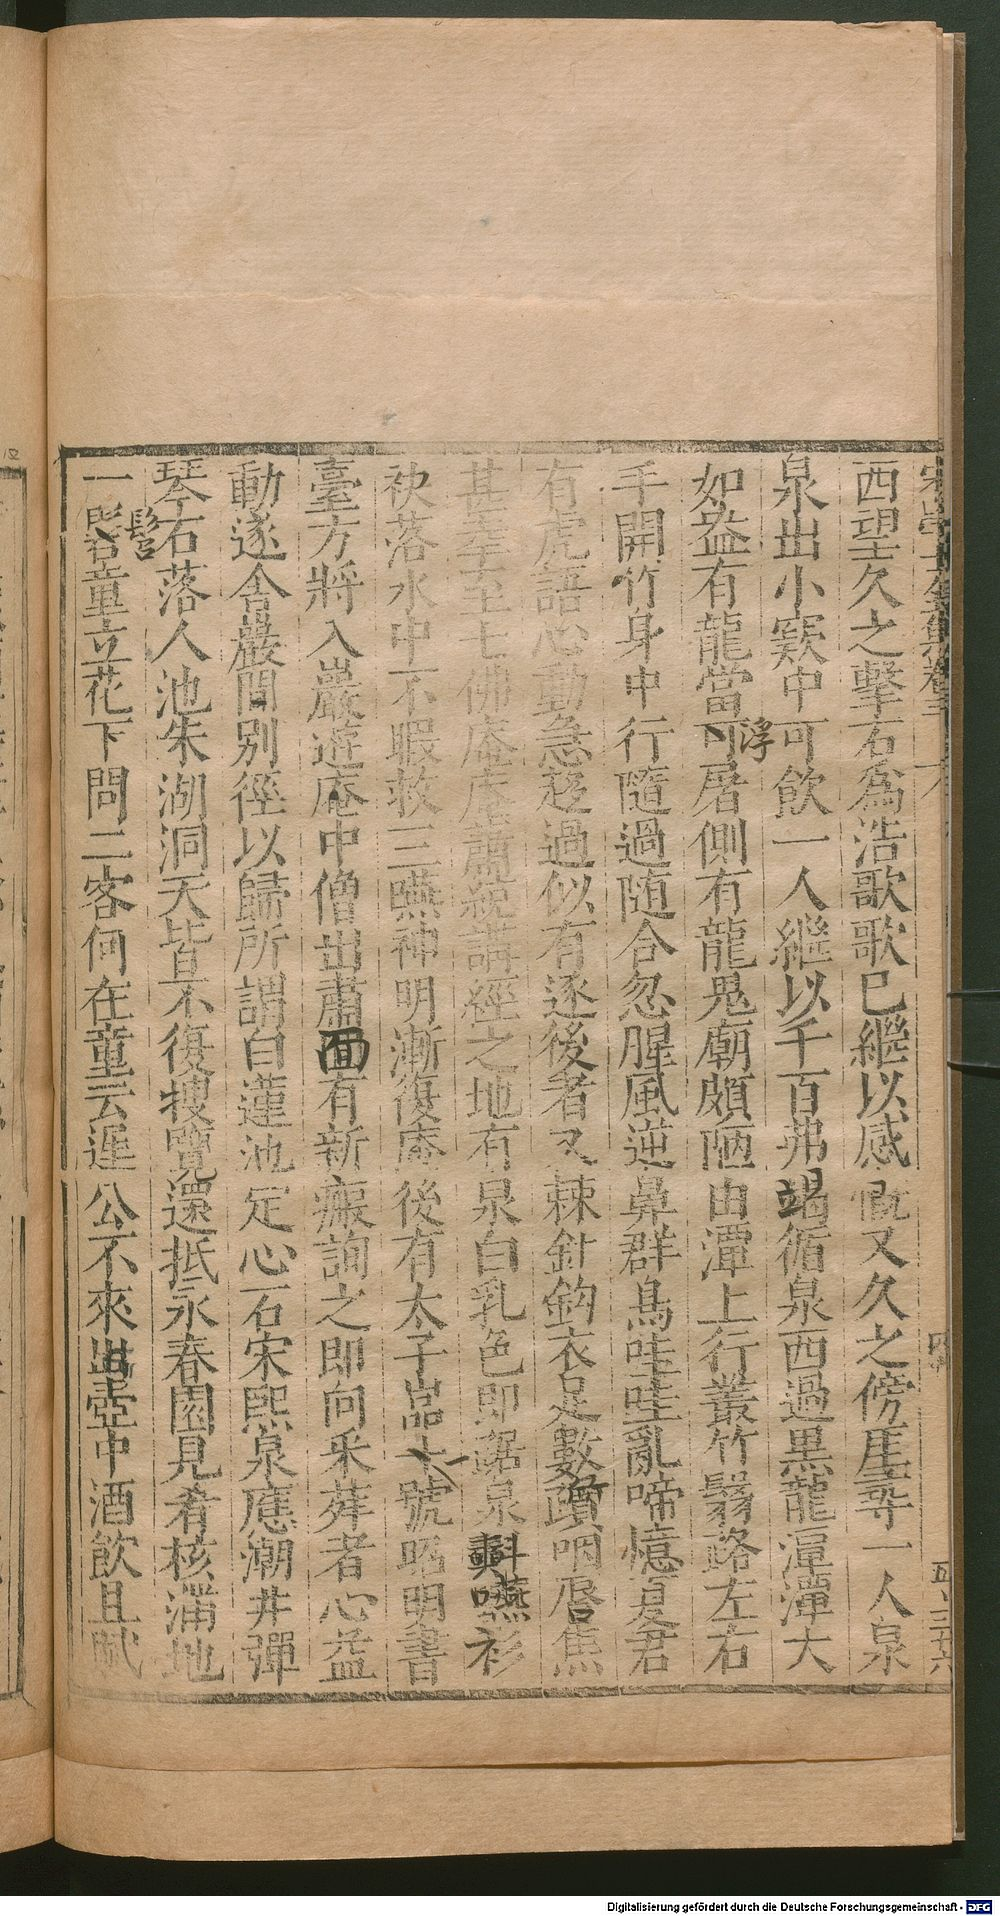 西望久之擊石為浩歌歌已繼以感慨又久之傍厓尋一人泉
泉出小竅中可飲一人繼以千百弗竭循泉西過黑龍潭潭大
如盌有龍當可屠側有龍鬼廟頗陋由潭上行叢竹翳路左右
浮
手開竹身中行隨過随合忽腥風逆鼻群鳥哇哇亂啼憶夏君
有虎語心動急趍過似有逐後者又棘針鈎衣足數躓咽唇焦
甚幸至七佛庵庵蕭統講經之地有泉白乳色即踞泉㪺嚥衫
袂落水中不暇救三嚥神明漸復庵後有太子嵓一號昭明書
臺方將入巖遊庵中僧出肅面有新瘢詢之即向采荈者心益
動遂舍巖間別徑以歸所謂白蓮池定心石宋熙泉應潮井彈
琴石落人池朱湖洞天皆不復搜覽還抵永春園見肴核滿地
一髫童立花下問二客何在童云遲公不來出壺中酒飲且賦
髫
Digitalisierung gefördert durch die Deutsche Forschungsgemeinschaft - DFG